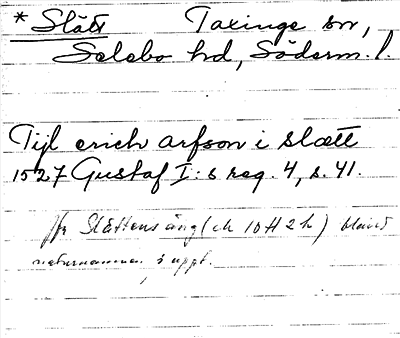 * Slätt Taxinge sn,
Selebo hd, Söderm. l.
Tijl erich arfson i slætt
1527 Gustaf I:s reg. 4, s. 41.
Jfr Slättens äng (ek 10H2h) bland
naturnamnen i uppt.